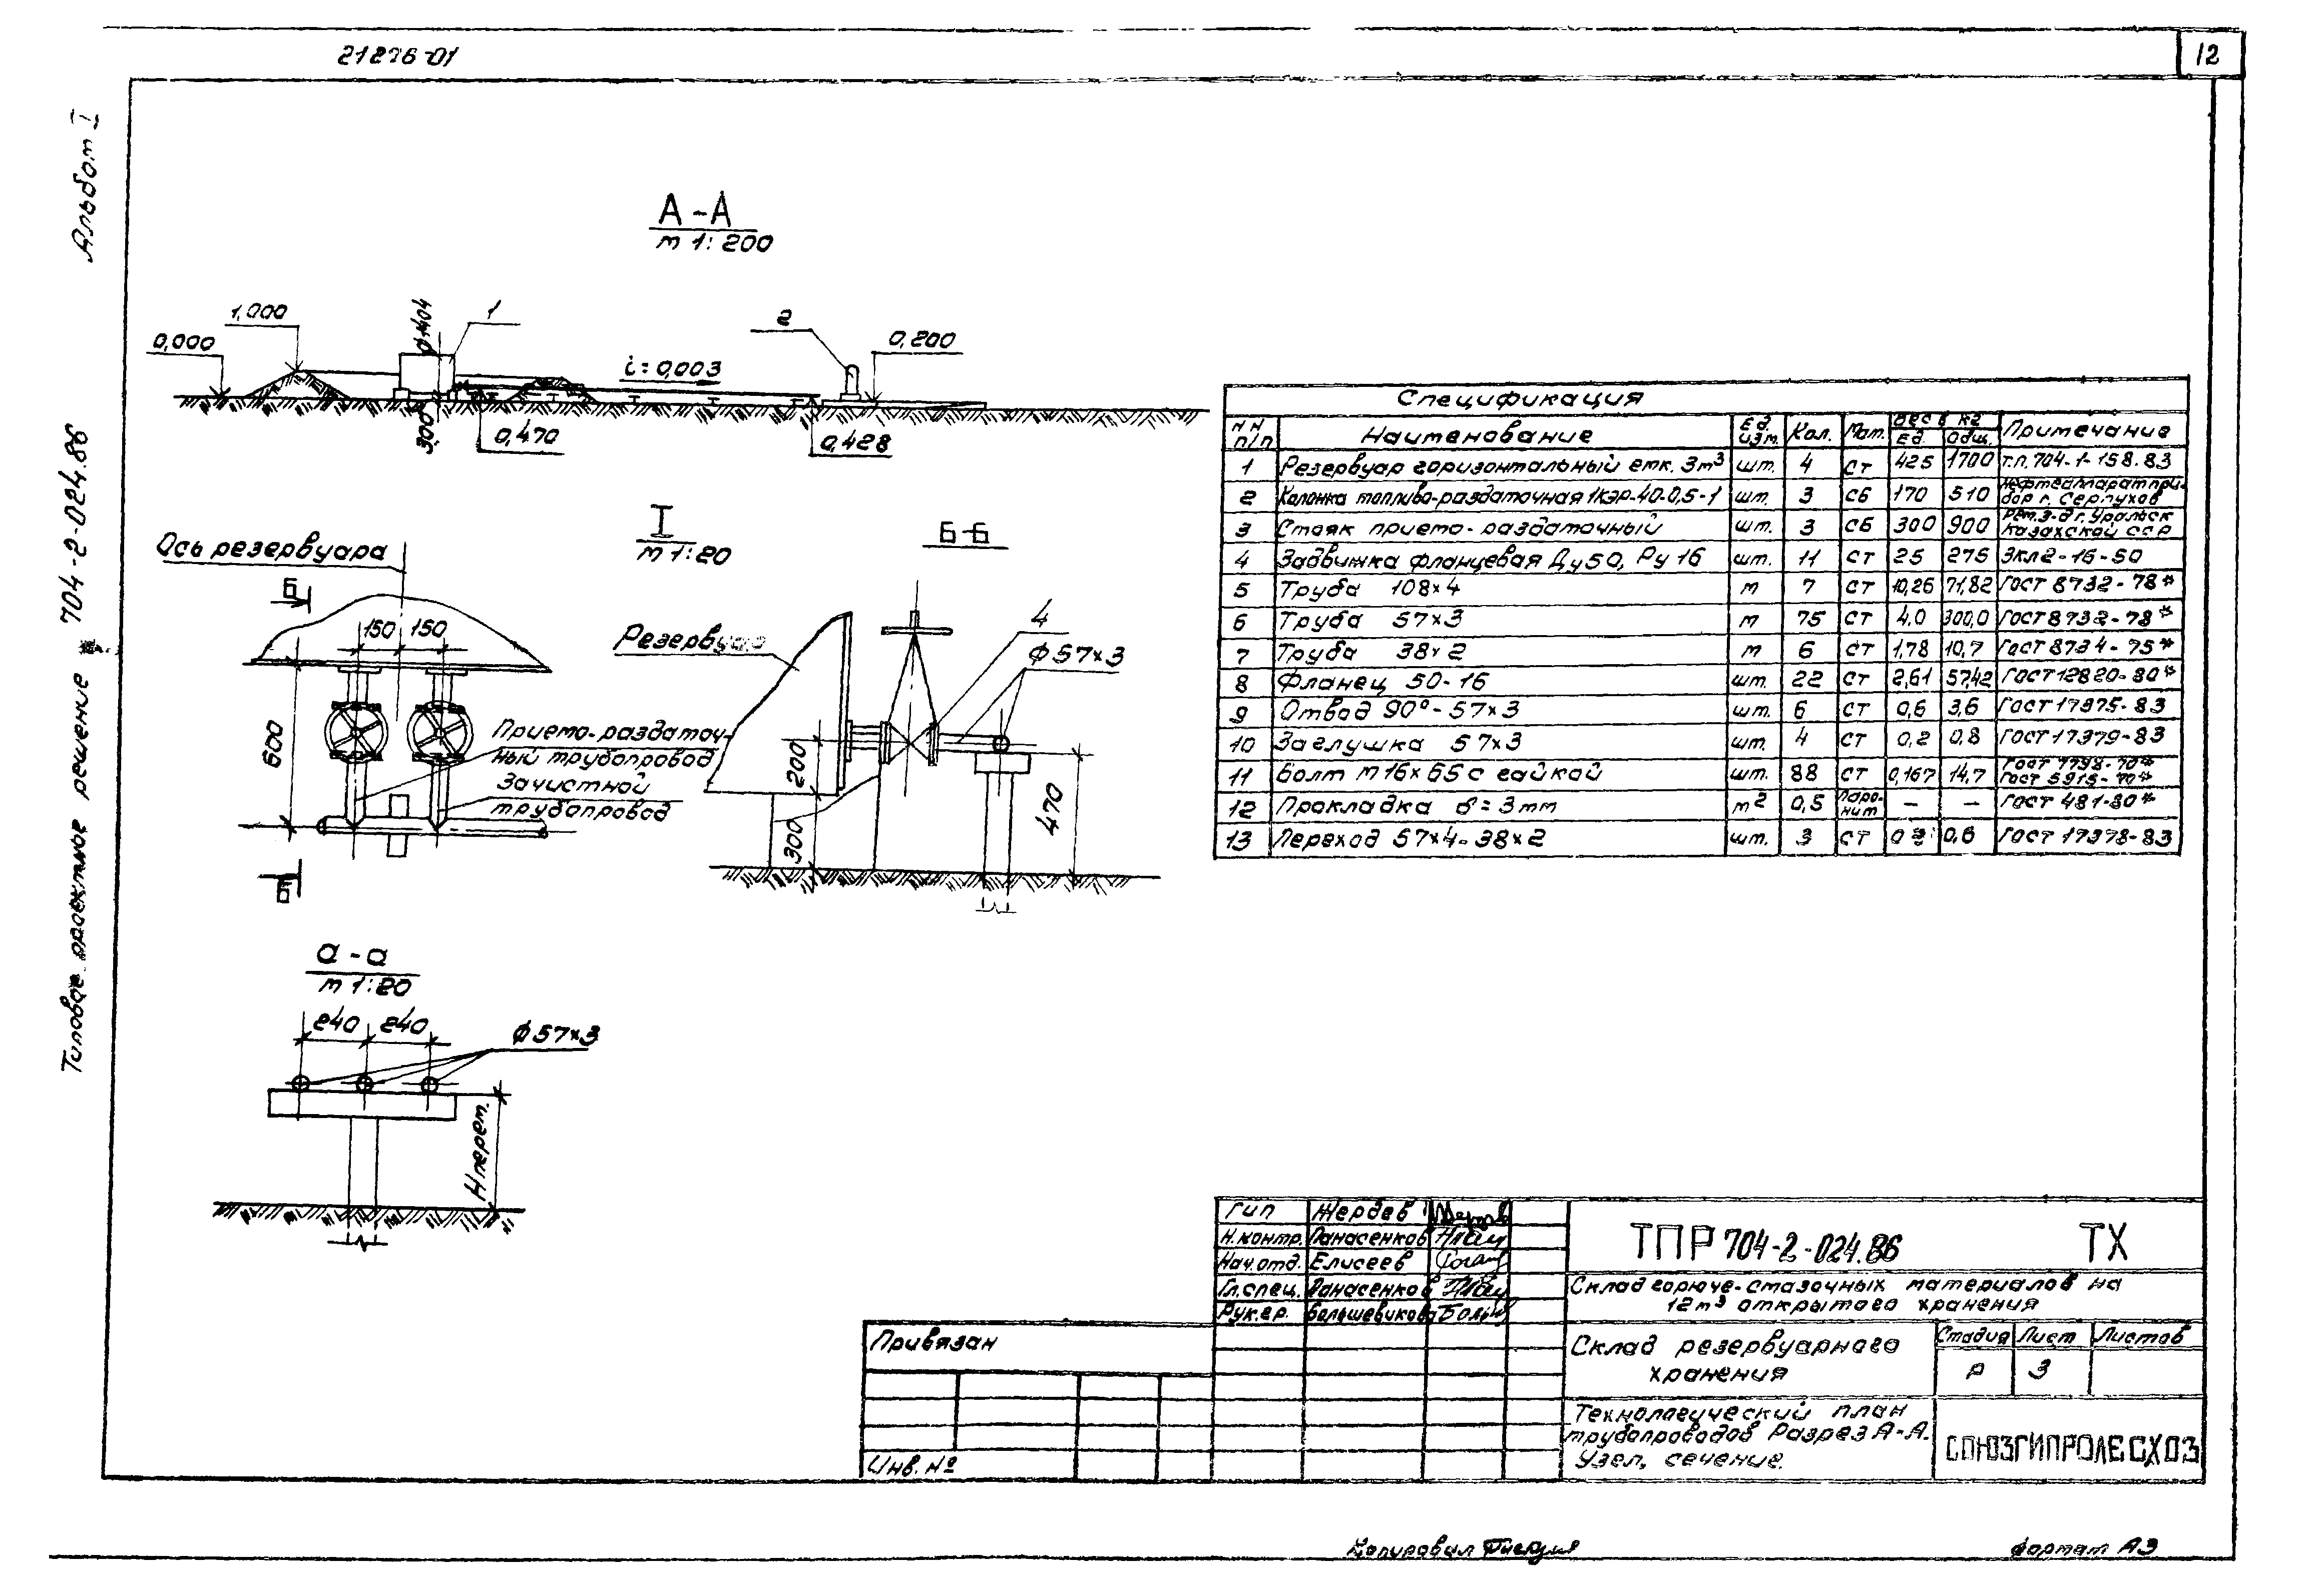 21276-01
12
Альбом I
Типовое проектное решение 704-2-024.86
А-А
м 1:200
0,000
1,000
ø1404
1
i=0,003
2
0,200
300
0,470
0,428
I
м 1:20
Ось резервуара
Б
150 150
600
Приемо-раздаточ-
ный трубопровод
Зачистной
трубопровод
Б
Б-Б
Резервуар
4
ф57×3
200
300
470
а-а
м 1:20
240 240
ф57×3
Нперем.
Спецификация
НН п/п Наименование Ед. изм. Кол. Мат. Вес в кг Ед. Общ. Примечание
1 Резервуар горизонтальный емк. 3м³ шт. 4 ст 425 1700 т.п. 704-1-158.83
2 Колонка топливо-раздаточная 1КЭР-40-0,5-1 шт. 3 сб 170 510 Нефтеаппаратпри-
бор г. Серпухов
3 Стояк приемо-раздаточный шт. 3 сб 300 900 Рем. з-д г. Уральск
Казахской ССР
4 Задвижка фланцевая Ду50, Ру16 шт. 11 ст 25 275 ЗКЛ2-16-50
5 Труба 108×4 м 7 ст 10,26 71,82 ГОСТ 8732-78*
6 Труба 57×3 м 75 ст 4,0 300,0 ГОСТ 8732-78*
7 Труба 38×2 м 6 ст 1,78 10,7 ГОСТ 8734-75*
8 Фланец 50-16 шт. 22 ст 2,61 57,42 ГОСТ 12820-80*
9 Отвод 90°-57×3 шт. 6 ст 0,6 3,6 ГОСТ 17375-83
10 Заглушка 57×3 шт. 4 ст 0,2 0,8 ГОСТ 17379-83
11 Болт М16×65 с гайкой шт. 88 ст 0,167 14,7 ГОСТ 7798-70*
ГОСТ 5915-70*
12 Прокладка δ=3мм м² 0,5 Паро-
нит — — ГОСТ 481-80*
13 Переход 57×4-38×2 шт. 3 ст 0,6 ГОСТ 17378-83
ГИП Жердев
Н.контр. Панасенков
Нач.отд. Елисеев
Гл.спец. Панасенков
Рук.гр. Большевикова
ТПР 704-2-024.86 ТХ
Склад горюче-смазочных материалов на
12м³ открытого хранения
Привязан
Инв. №
Склад резервуарного
хранения
Стадия Лист Листов
Р 3
Технологический план
трубопроводов Разрез А-А.
Узел, сечение.
СОЮЗГИПРОЛЕСХОЗ
Копировал
формат А3